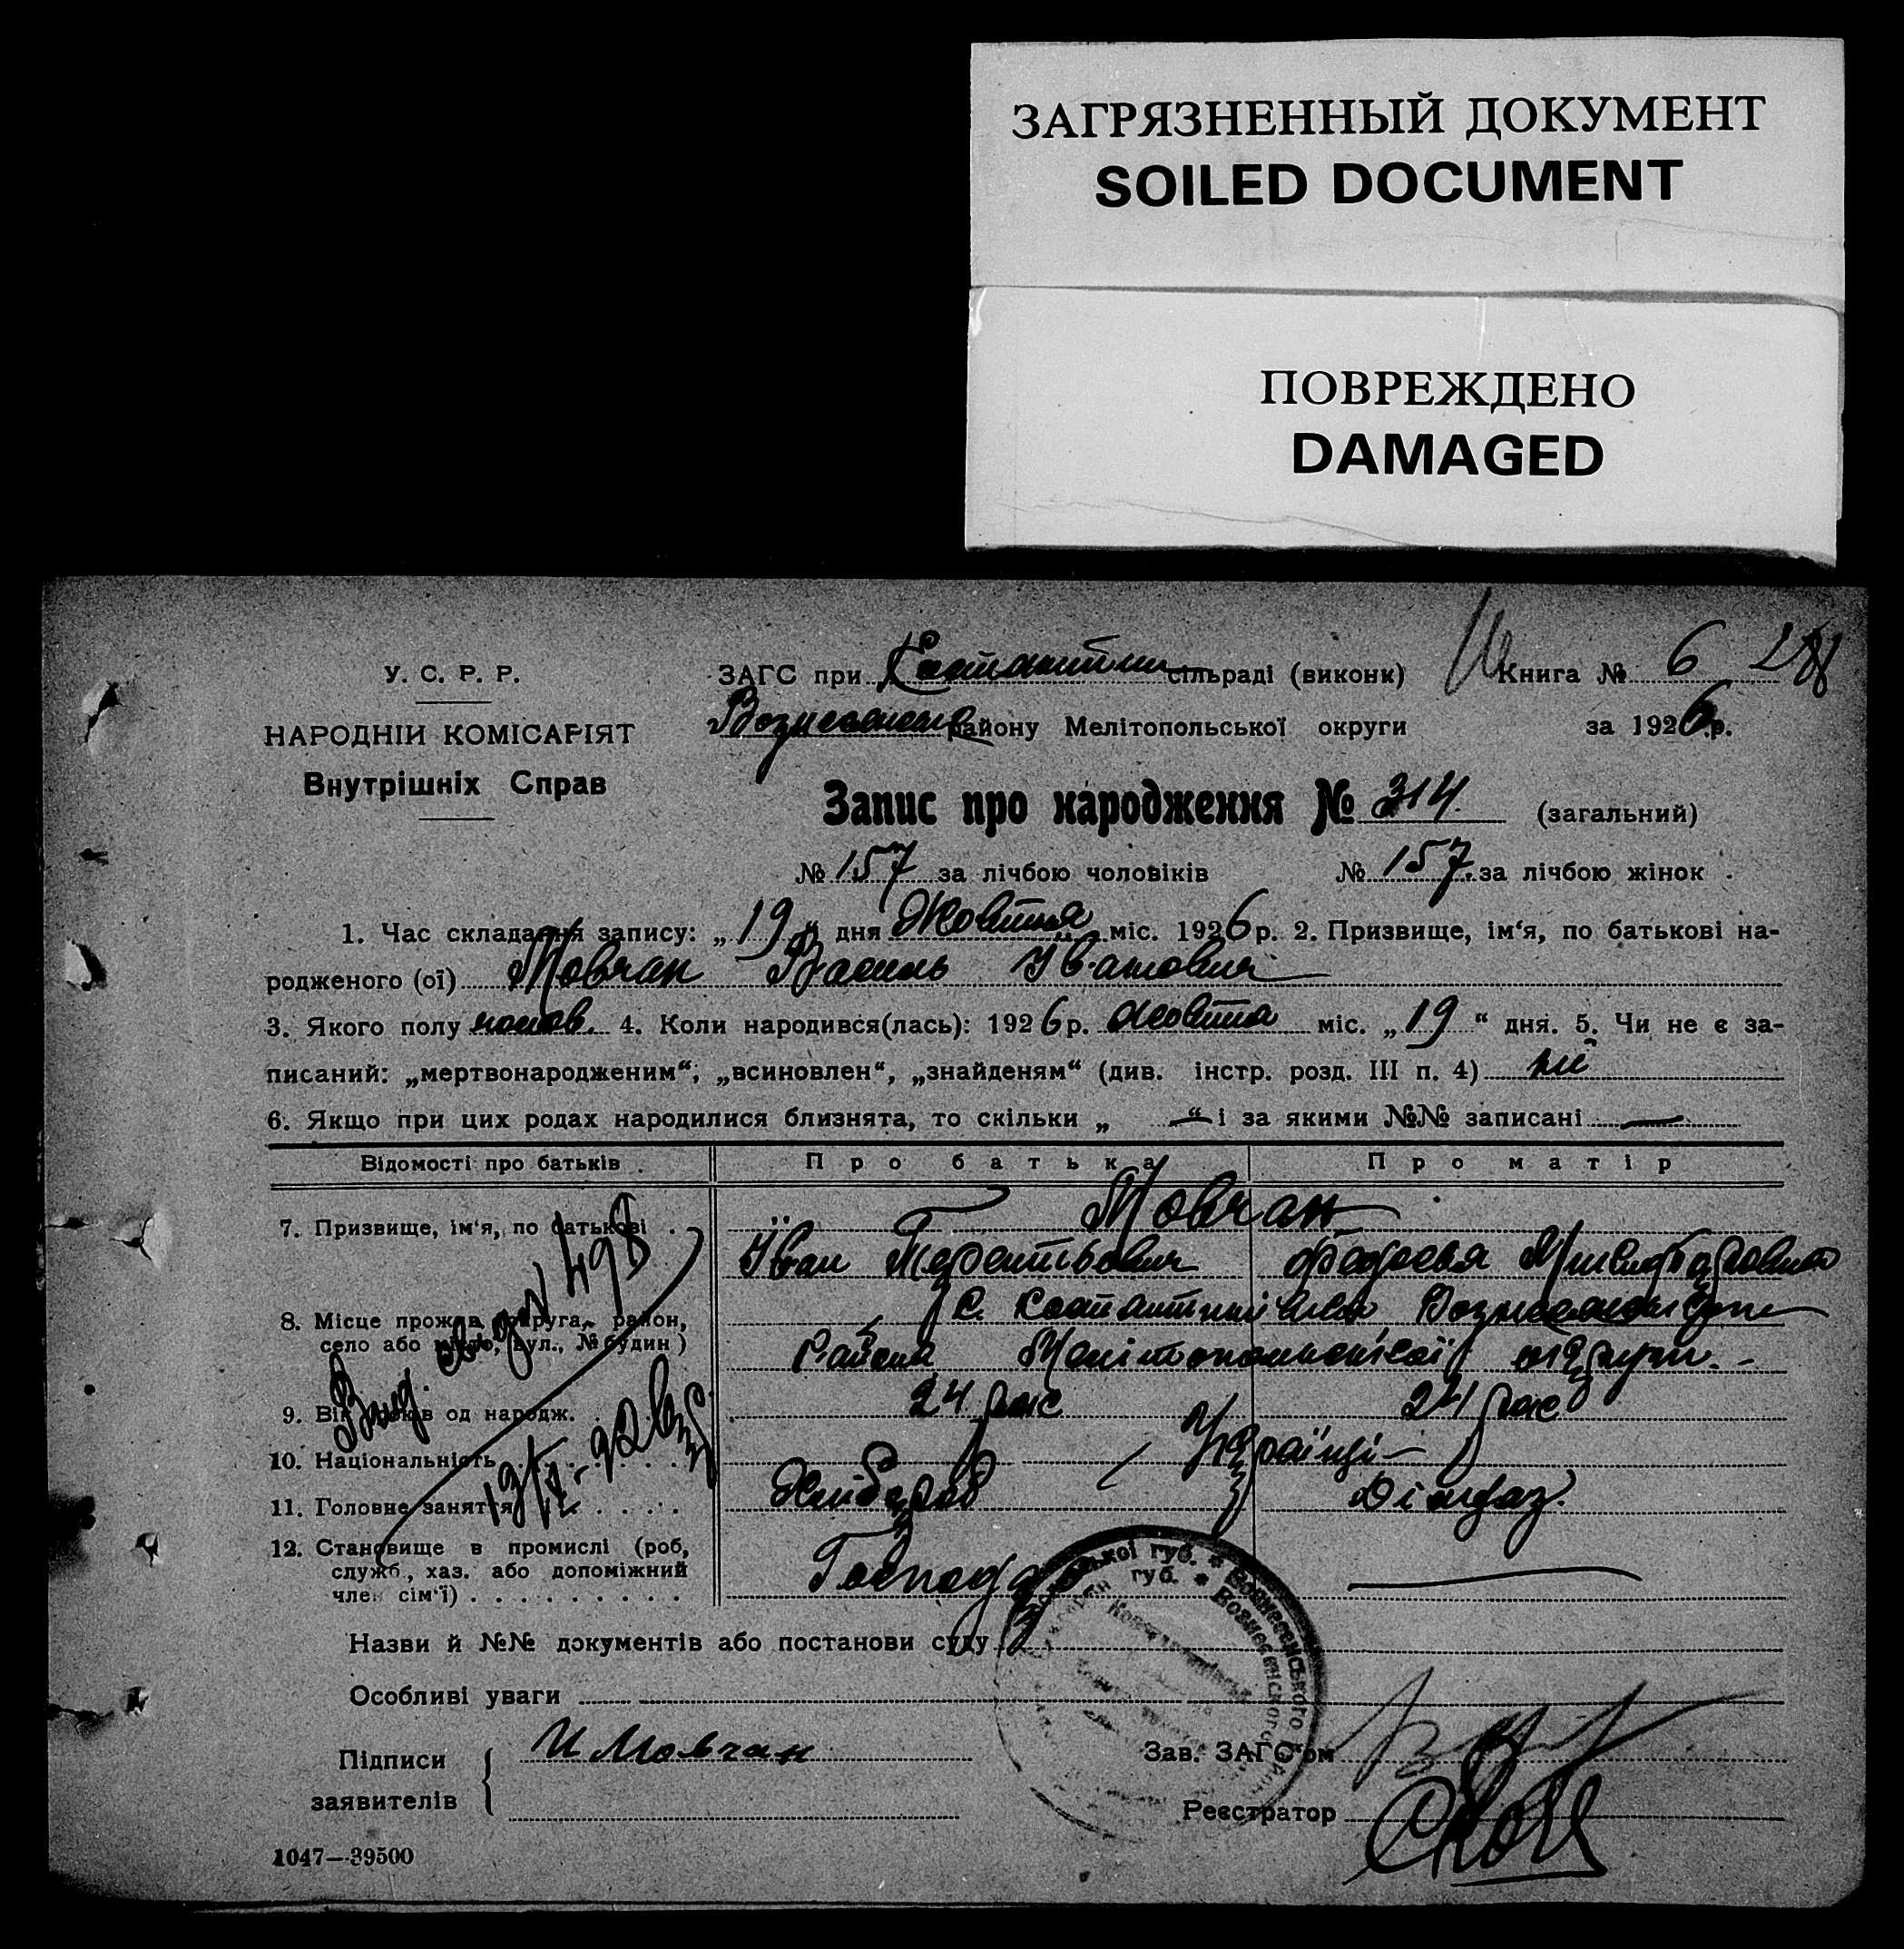 ЗАГРЯЗНЕННЫЙ ДОКУМЕНТ
SOILED DOCUMENT
ПОВРЕЖДЕНО
DAMAGED
У. С. Р. Р.
НАРОДНІЙ КОМІСАРІЯТ
Внутрішніх Справ
ЗАГС при сільраді (виконк) Книга № 6
району Мелітопольської округи за 1926 р.
Запис про народження № 314 (загальний)
№ 157 за лічбою чоловіків № 157 за лічбою жінок
1. Час складання запису: „19“ дня Жовтня міс. 1926 р. 2. Призвище, ім'я, по батькові на-
родженого (ої) Мовчан Василь Іванович
3. Якого полу чолов. 4. Коли народився(лась): 1926 р. Жовтня міс. „19“ дня. 5. Чи не є за-
писаний: „мертвонародженим“, „всиновлен“, „знайденям“ (див. інстр. розд. III п. 4) ні
6. Якщо при цих родах народилися близнята, то скільки „ — “ і за якими №№ записані —
Відомості про батьків Про батька Про матір
7. Призвище, ім'я, по батькові Мовчан
Іван Терентьович
8. Місце прожив. (округа, район,
село або місто, вул., № будин)
Району Мелітопольської округи
9. Вік років од народж. 24 рок 24 рок
10. Національність Українці
11. Головне заняття Хлібороб
12. Становище в промислі (роб,
служб., хаз. або допоміжний
член сім'ї) Господар —
Назви й №№ документів або постанови суду
Особливі уваги
Підписи
заявителів
И Мовчан
Зав. ЗАГС'ом
Реєстратор
1047—39500